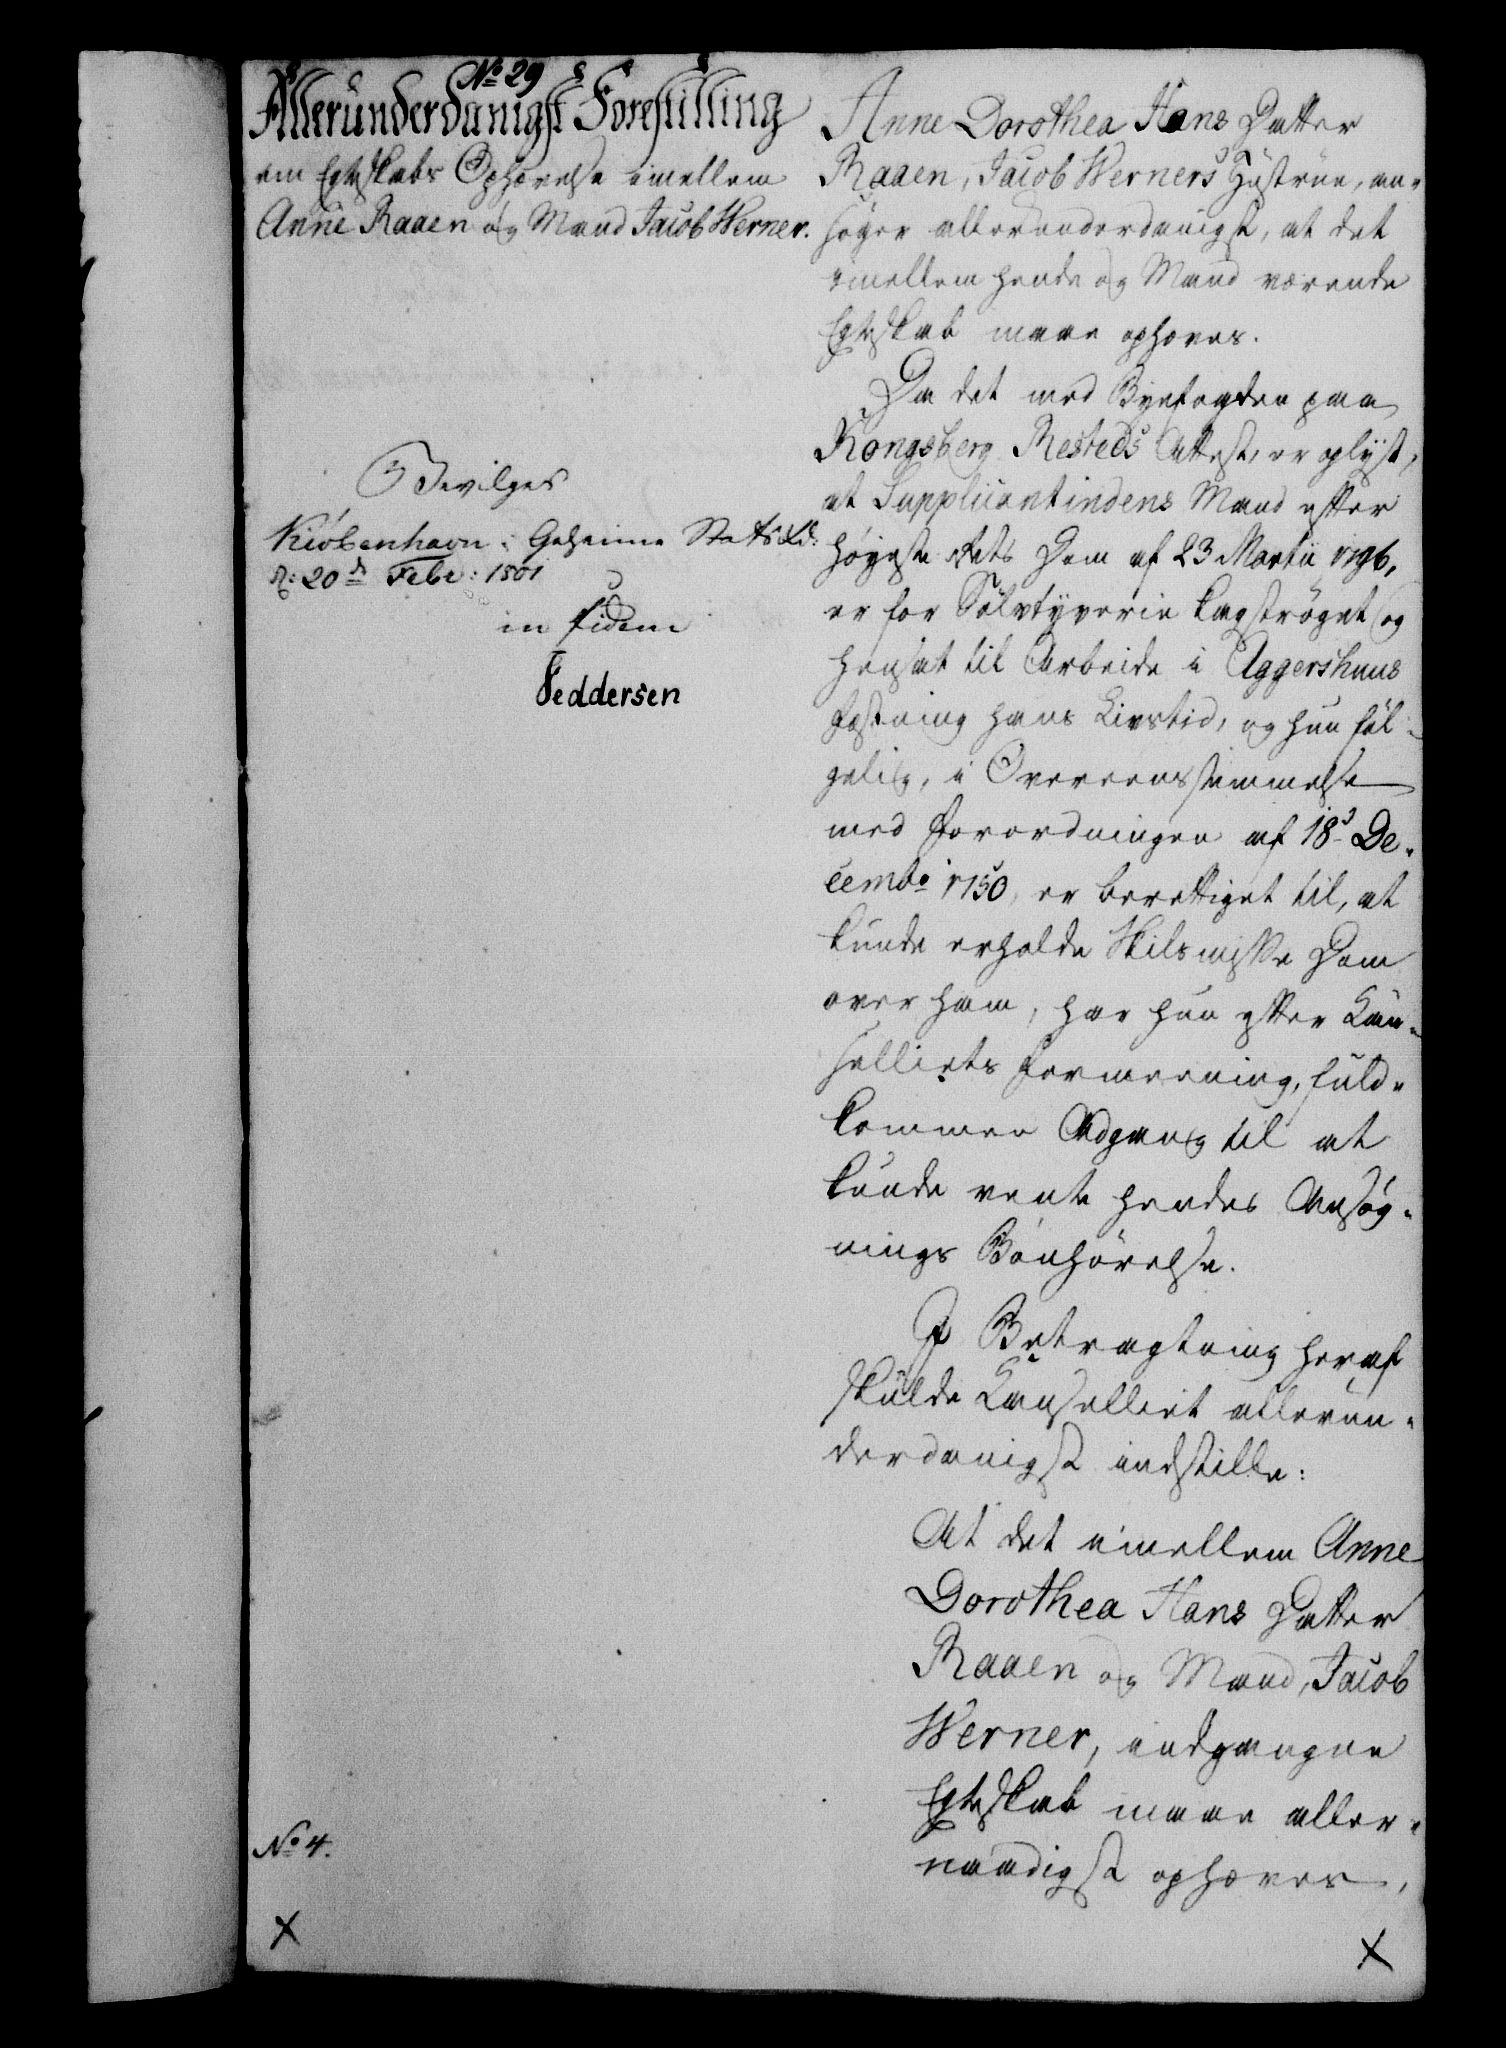 No 29
Allerunderdanigst Forestilling
om Egteskabs Ophævelse imellem
Anne Raaen og Mand Jacob Werner.
Bevilges
Kiöbenhavn i Geheime Stats Rd:
d: 20d Febr: 1801
in fidem
Feddersen
No 4.
Anne Dorothea Hans Datter
Raaen, Jacob Werners Hustrue, an-
söger allerunderdanigst, at det
imellem hende og Mand værende
Egteskab maae ophæves.
Da det med Byefogden paa
Kongsberg Resteds Attest, er oplyst,
at Supplicantindens Mand efter
Höyeste Rets Dom af 23 Martii 1796,
er for Sölvtyverie kagströget og
hensat til Arbeide i Aggershuus
Fæstning hans Livstid, og hun föl-
gelig, i Overeensstemmelse
med Forordningen af 18d De-
cembr 1750, er berettiget til, at
kunde erholde Skilsmisse Dom
over ham, har hun efter Can-
celliets Formeening, fuld-
kommen Adgang til at
kunde vente hendes Ansög-
nings Bönhörelse.
I Betragtning heraf
skulde Cancelliet allerun-
derdanigst indstille:
At det imellem Anne
Dorothea Hans Datter
Raaen og Mand, Jacob
Werner, indgangne
Egteskab maae aller-
naadigst ophæves,